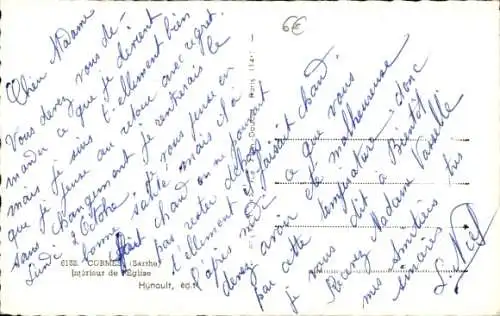 6€
Chère Madame
Vous devez vous de-
mander ce que je deviens
mais je suis tellement bien
que je pense au retour avec regret.
sans changement je rentrerais le
Lundi 2 Octobre. Je vous pense en
bonne santé mais il a
fait chaud on ne pouvait
pas rester dehors
tellement il faisait chaud.
l'après midi
devez avoir été malheureuse
par cette température. donc
je vous dit à Bientôt
Recevez Madame Vasselle
mes Amitiés les
sincères
6132. CORMES (Sarthe)
Intérieur de l'Eglise
Hunault, éd.